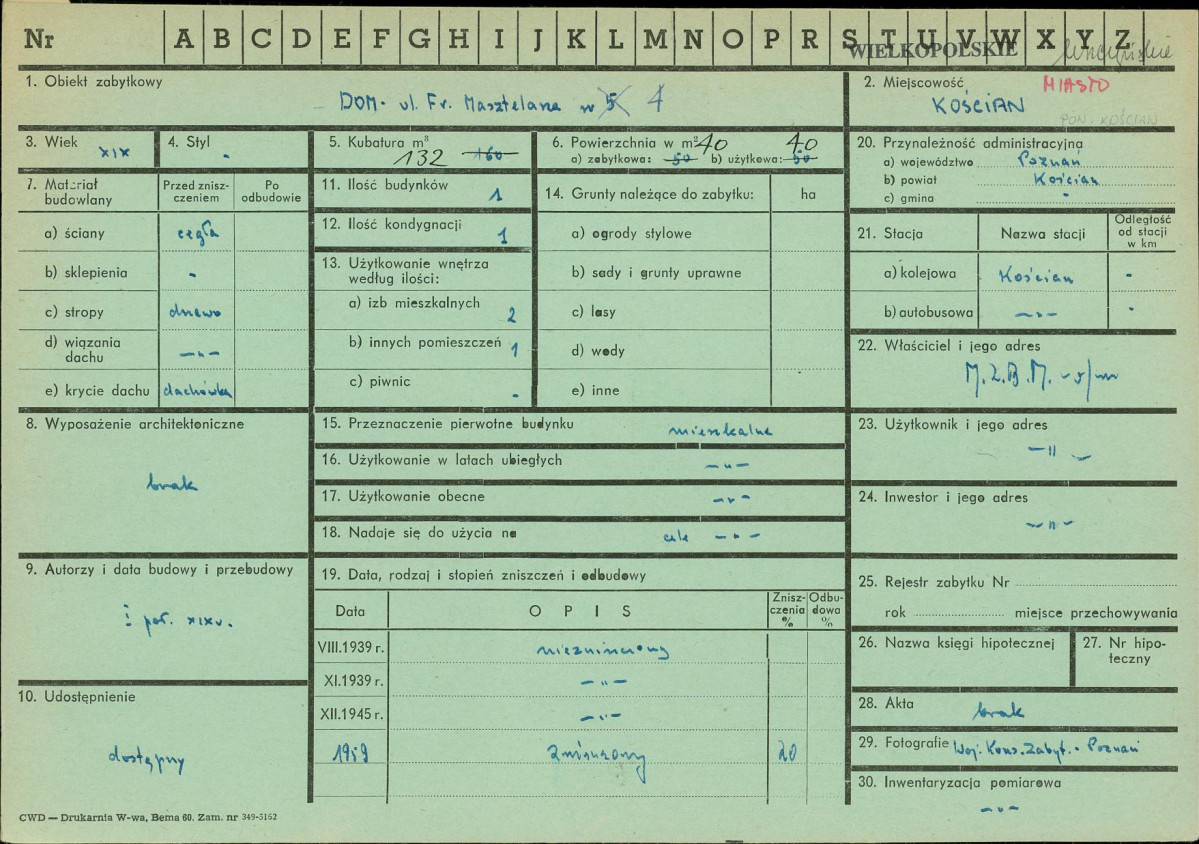 Nr A B C D E F G H I J K L M N O P R S T U V W X Y Z
WIELKOPOLSKIE
1. Obiekt zabytkowy
DOM - ul. Fr. Masztelana nr 5 4
2. Miejscowość MIASTO
KOŚCIAN
POW. KOŚCIAN
3. Wiek XIX
4. Styl -
5. Kubatura m³
132 160
6. Powierzchnia w m² 40 40
a) zabytkowa: 50 b) użytkowa: 50
20. Przynależność administracyjna
a) województwo Poznań
b) powiat Kościan
c) gmina -
7. Materiał budowlany
Przed zniszczeniem
Po odbudowie
a) ściany cegła
b) sklepienia -
c) stropy drewo
d) wiązania dachu -"-
e) krycie dachu dachówka
11. Ilość budynków 1
12. Ilość kondygnacji 1
13. Użytkowanie wnętrza
według ilości:
a) izb mieszkalnych 2
b) innych pomieszczeń 1
c) piwnic -
14. Grunty należące do zabytku: ha
a) ogrody stylowe
b) sady i grunty uprawne
c) lasy
d) wody
e) inne
21. Stacja
Nazwa stacji
Odległość od stacji w km
a) kolejowa Kościan -
b) autobusowa -"- -
22. Właściciel i jego adres
M.Z.B.M. - w/m
8. Wyposażenie architektoniczne
brak
15. Przeznaczenie pierwotne budynku mieszkalne
16. Użytkowanie w latach ubiegłych -"-
17. Użytkowanie obecne -"-
18. Nadaje się do użycia na cele -"-
23. Użytkownik i jego adres
-"-
24. Inwestor i jego adres
-"-
9. Autorzy i data budowy i przebudowy
I poł. XIX w.
19. Data, rodzaj i stopień zniszczeń i odbudowy
Data
OPIS
Zniszczenia %
Odbudowa %
VIII.1939 r. niezniszczony
XI.1939 r. -"-
XII.1945 r. -"-
1959 zniszczony 20
25. Rejestr zabytku Nr
rok miejsce przechowywania
26. Nazwa księgi hipotecznej
27. Nr hipoteczny
10. Udostępnienie
dostępny
28. Akta
brak
29. Fotografie Woj. Kons. Zabyt. - Poznań
30. Inwentaryzacja pomiarowa
-"-
CWD — Drukarnia W-wa, Bema 60. Zam. nr 349-5162